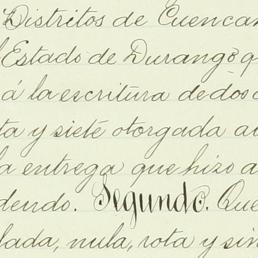 Distritos de Cuencam
Estado de Durango q
á la escritura de dos d
ta y siete otorgada a
a entrega que hizo a
dendo. Segundo. Que
lada, nula, rota y sin